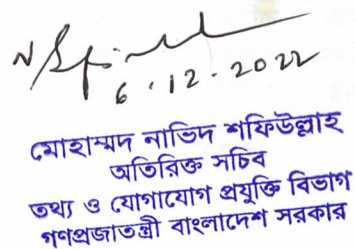 6.12.2022
মোহাম্মদ নাভিদ শফিউল্লাহ
অতিরিক্ত সচিব
তথ্য ও যোগাযোগ প্রযুক্তি বিভাগ
গণপ্রজাতন্ত্রী বাংলাদেশ সরকার